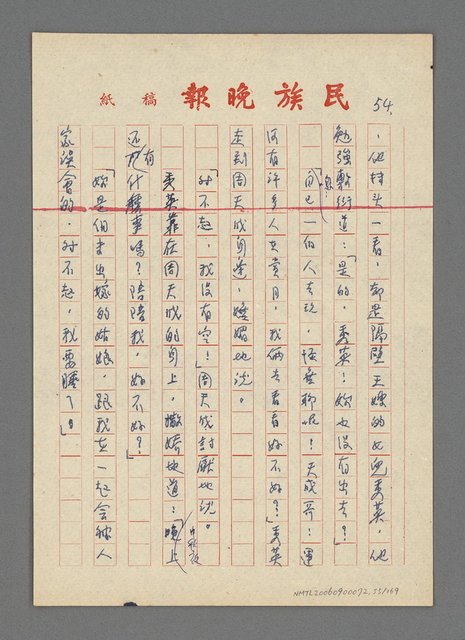 民族晚報 稿紙
54.
，他抬头一看，却是隔壁王嫂的女兒秀英，他
勉強敷衍道：「是的，秀英！妳也没有出去？」
「自己一個人去玩，怪無聊呢！天成哥！運
河有許多人在賞月，我俩去看看好不好？」秀英
走到周天成身邊，嫵媚地说。
「对不起，我没有空！」周天成討厭地说。
秀英靠在周天成的身上，撒嬌地道：「晚上
中秋夜
还有什麼事嗎？陪陪我，好不好？」
「妳是個未出嫁的姑娘，跟我在一起会被人
家误會的，对不起，我要睡了。」
NMTL20060900072,55/169